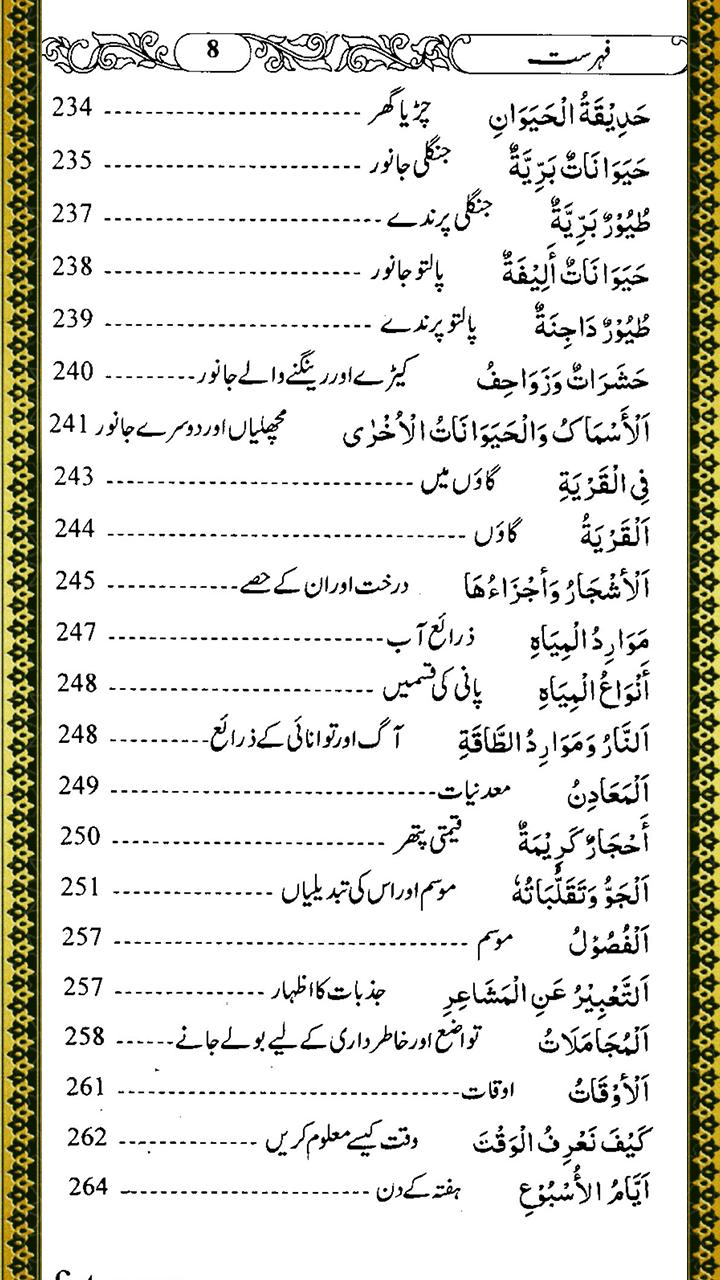 فہرست 8
حَدِيْقَةُ الْحَيَوَانِ چڑیا گھر ---------- 234
حَيَوَانَاتٌ بَرِّيَّةٌ جنگلی جانور ---------- 235
طُيُوْرٌ بَرِّيَّةٌ جنگلی پرندے ---------- 237
حَيَوَانَاتٌ أَلِيْفَةٌ پالتو جانور ---------- 238
طُيُوْرٌ دَاجِنَةٌ پالتو پرندے ---------- 239
حَشَرَاتٌ وَزَوَاحِفُ کیڑے اور رینگنے والے جانور ---------- 240
اَلْأَسْمَاكُ وَالْحَيَوَانَاتُ الْأُخْرٰى مچھلیاں اور دوسرے جانور 241
فِي الْقَرْيَةِ گاؤں میں ---------- 243
اَلْقَرْيَةُ گاؤں ---------- 244
اَلْأَشْجَارُ وَأَجْزَاءُهَا درخت اور ان کے حصے ---------- 245
مَوَارِدُ الْمِيَاهِ ذرائع آب ---------- 247
أَنْوَاعُ الْمِيَاهِ پانی کی قسمیں ---------- 248
اَلنَّارُ وَمَوَارِدُ الطَّاقَةِ آگ اور توانائی کے ذرائع ---------- 248
اَلْمَعَادِنُ معدنیات ---------- 249
أَحْجَارٌ كَرِيْمَةٌ قیمتی پتھر ---------- 250
اَلْجَوُّ وَتَقَلُّبَاتُهٗ موسم اور اس کی تبدیلیاں ---------- 251
اَلْفُصُوْلُ موسم ---------- 257
اَلتَّعْبِيْرُ عَنِ الْمَشَاعِرِ جذبات کا اظہار ---------- 257
اَلْمُجَامَلَاتُ تواضع اور خاطر داری کے لیے بولے جانے ------ 258
اَلْأَوْقَاتُ اوقات ---------- 261
كَيْفَ نَعْرِفُ الْوَقْتَ وقت کیسے معلوم کریں ---------- 262
اَيَّامُ الْأُسْبُوْعِ ہفتہ کے دن ---------- 264